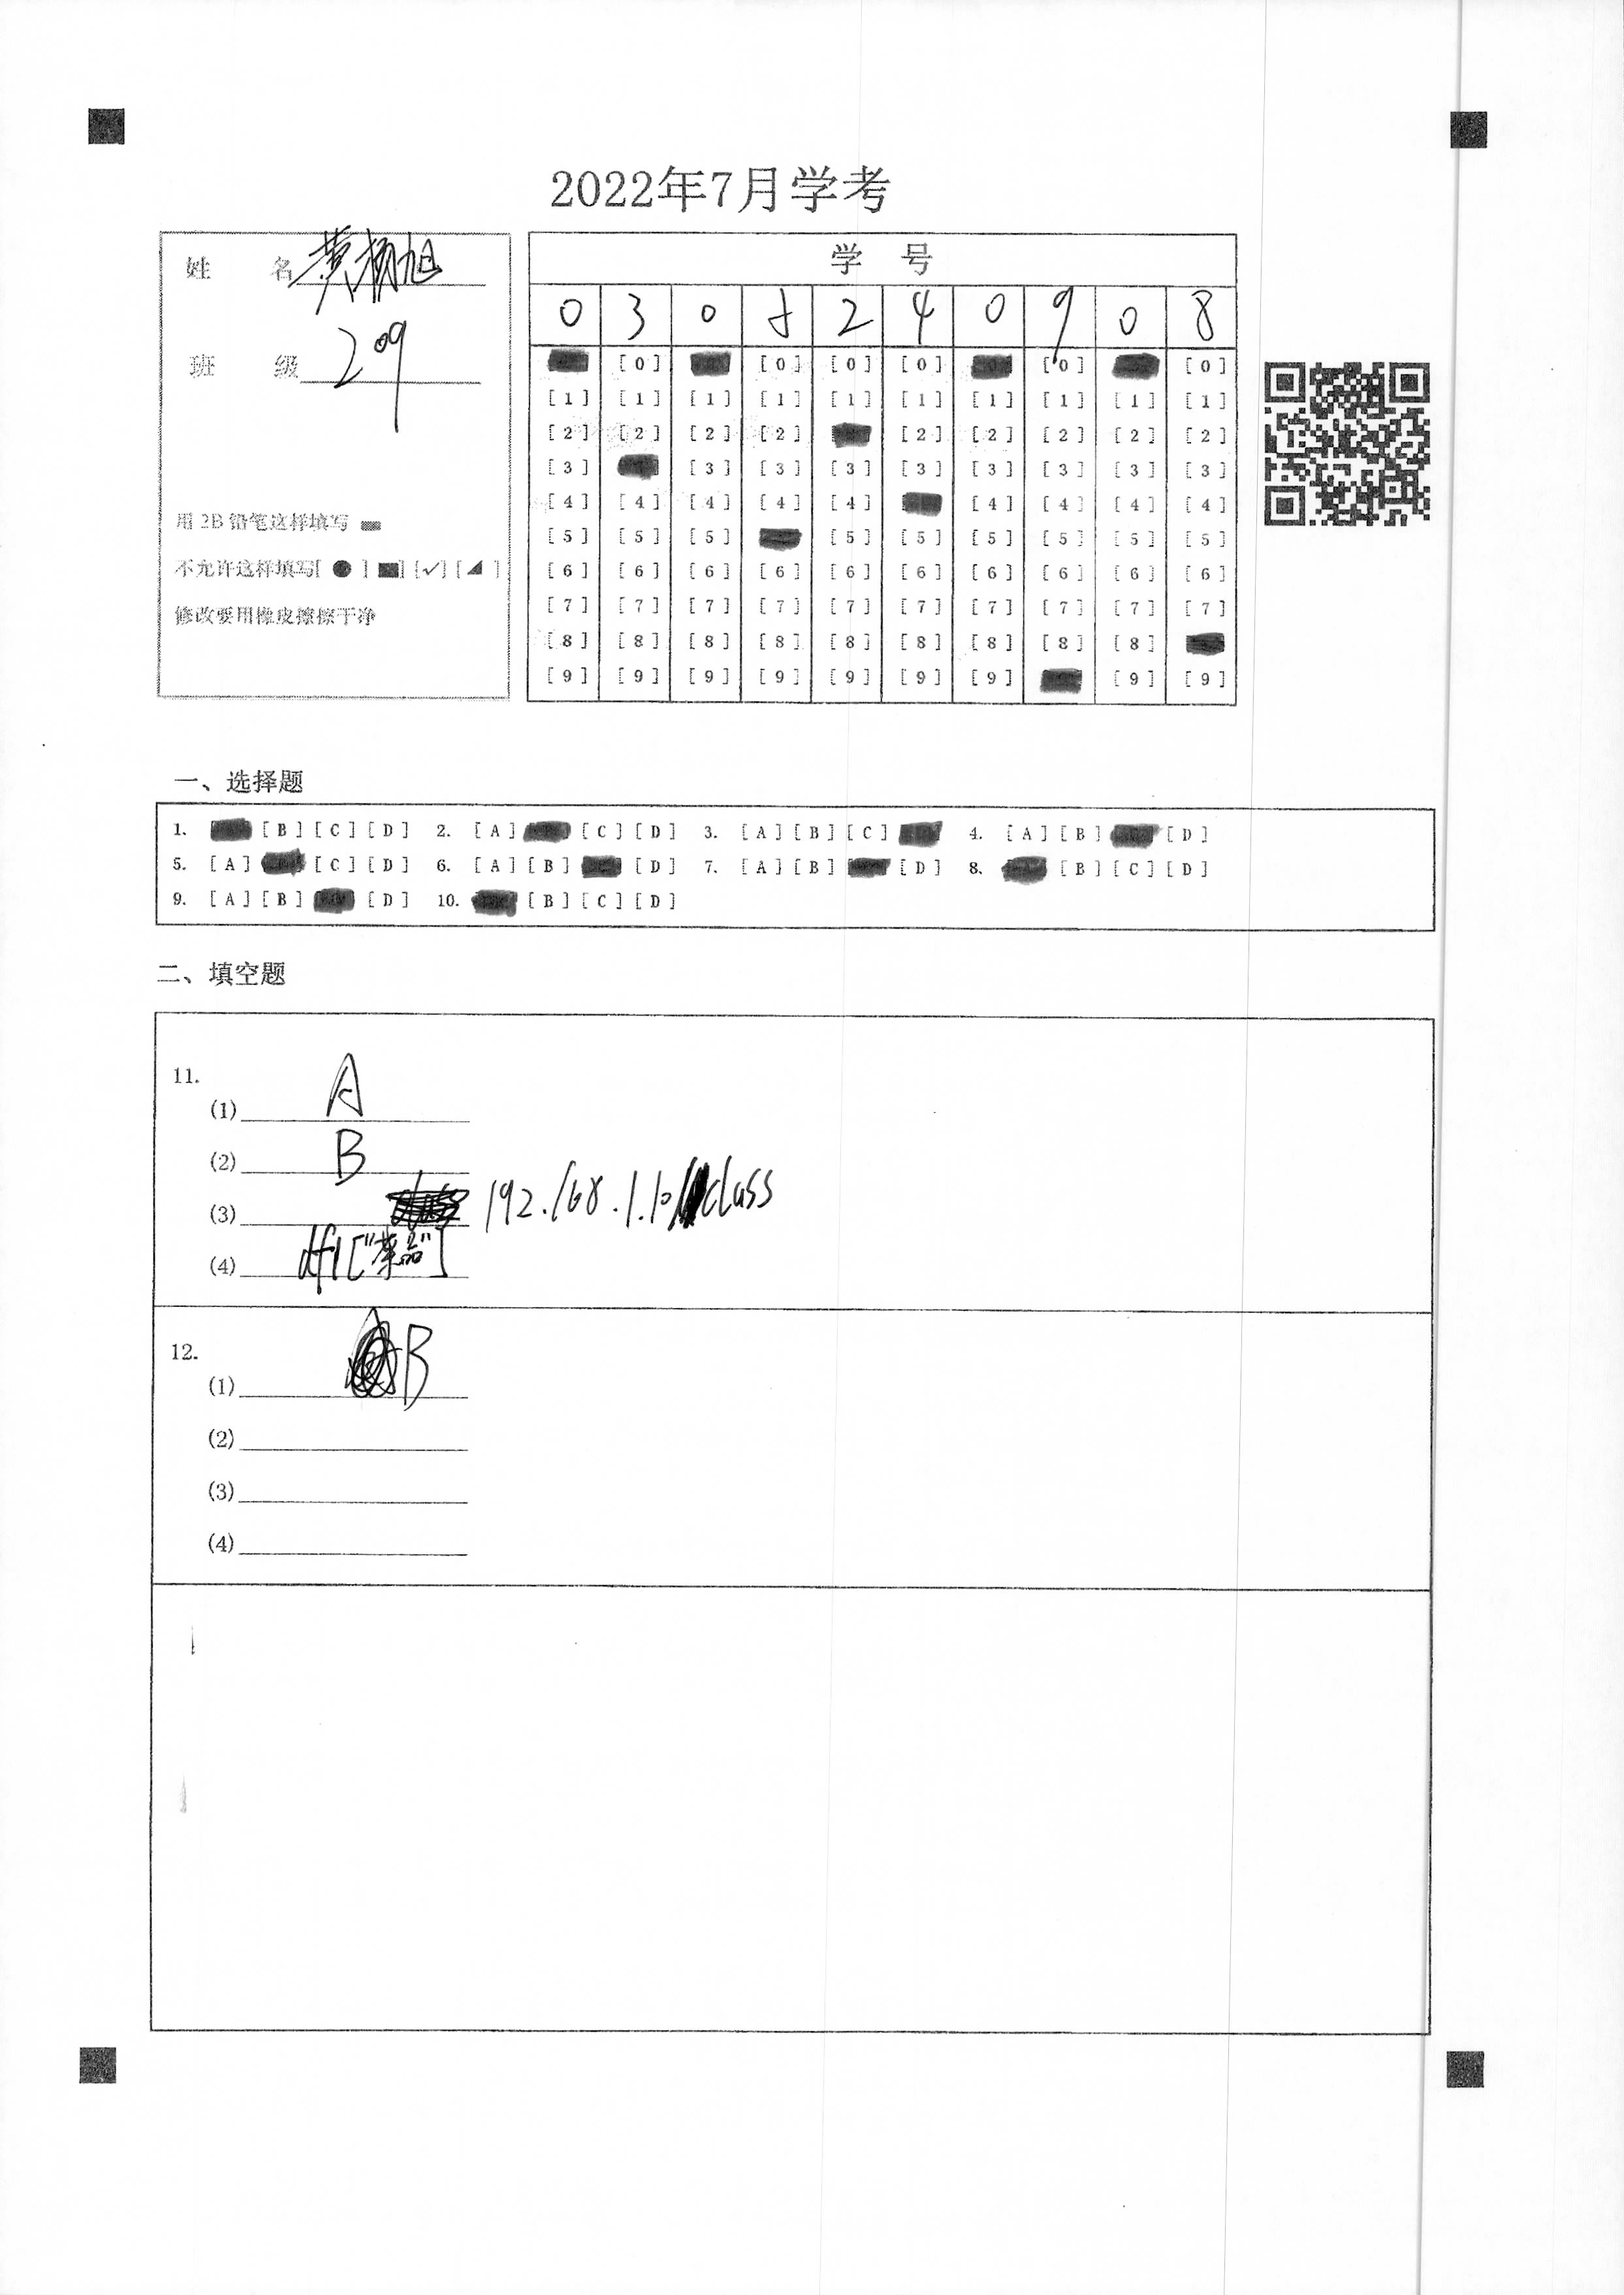 2022年7月学考
姓 名 黄杨旭
班 级 209
用 2B 铅笔这样填写
不允许这样填写[ ● ] [■] [✓] [◢ ]
修改要用橡皮擦擦干净
学 号
0 3 0 5 2 4 0 9 0 8
[0] [0] [0] [0] [0] [0]
[1] [1] [1] [1] [1] [1] [1] [1] [1] [1]
[2] [2] [2] [2] [2] [2] [2] [2] [2]
[3] [3] [3] [3] [3] [3] [3] [3] [3]
[4] [4] [4] [4] [4] [4] [4] [4] [4]
[5] [5] [5] [5] [5] [5] [5] [5] [5]
[6] [6] [6] [6] [6] [6] [6] [6] [6] [6]
[7] [7] [7] [7] [7] [7] [7] [7] [7] [7]
[8] [8] [8] [8] [8] [8] [8] [8] [8]
[9] [9] [9] [9] [9] [9] [9] [9] [9]
一、选择题
1. [B] [C] [D] 2. [A] [C] [D] 3. [A] [B] [C] 4. [A] [B] [D]
5. [A] [C] [D] 6. [A] [B] [D] 7. [A] [B] [D] 8. [B] [C] [D]
9. [A] [B] [D] 10. [B] [C] [D]
二、填空题
11.
(1) A
(2) B
(3) 192.168.1.10/class
(4) df1["菜品"]
12.
(1) B
(2)
(3)
(4)